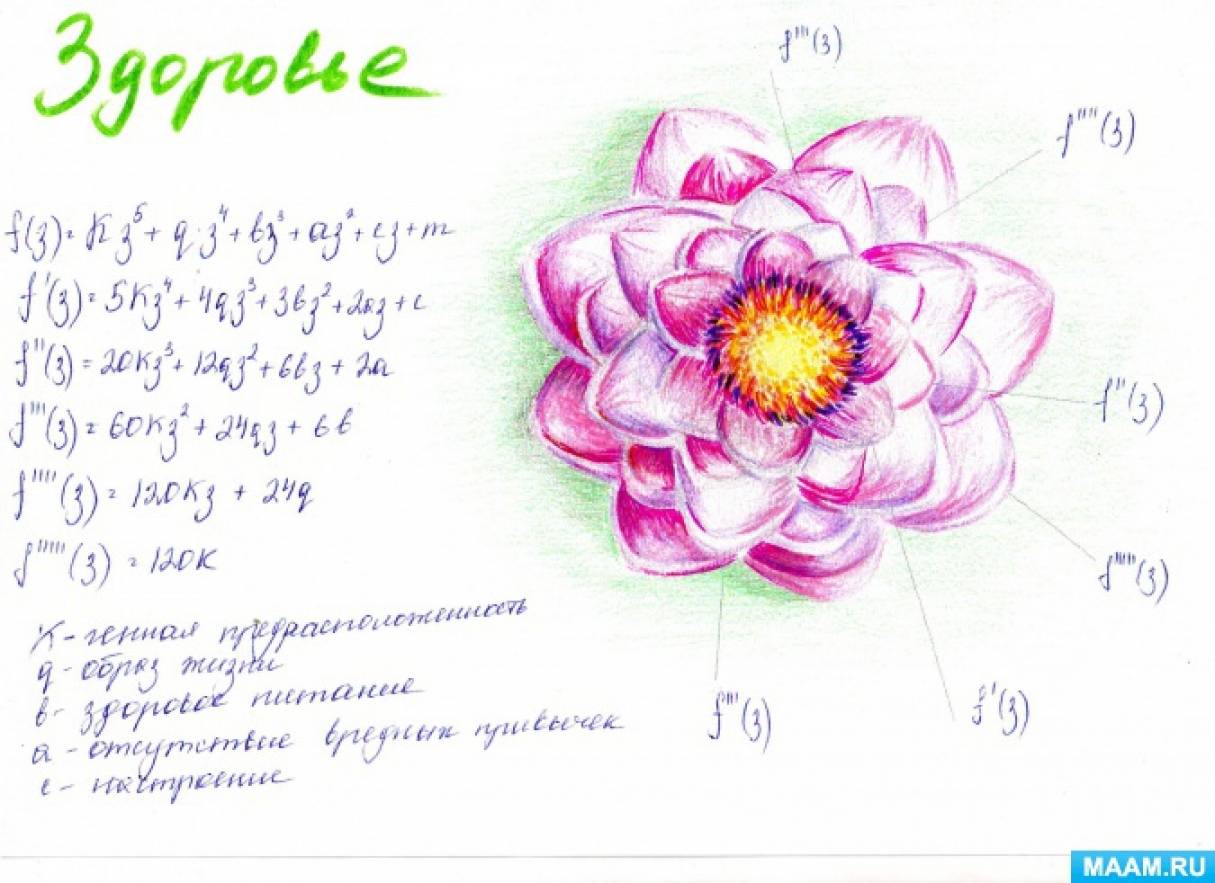 Здоровье
f(з) = Kз⁵ + q·з⁴ + bз³ + aз² + cз + m
f'(з) = 5Kз⁴ + 4qз³ + 3bз² + 2aз + c
f''(з) = 20Kз³ + 12qз² + 6bз + 2a
f'''(з) = 60Kз² + 24qз + 6b
f''''(з) = 120Kз + 24q
f'''''(з) = 120K
K - генная предрасположенность
q - образ жизни
b - здоровое питание
a - отсутствие вредных привычек
c - настроение
f'''(з)
f''''(з)
f''(з)
f'''''(з)
f'(з)
f'''(з)
MAAM.RU